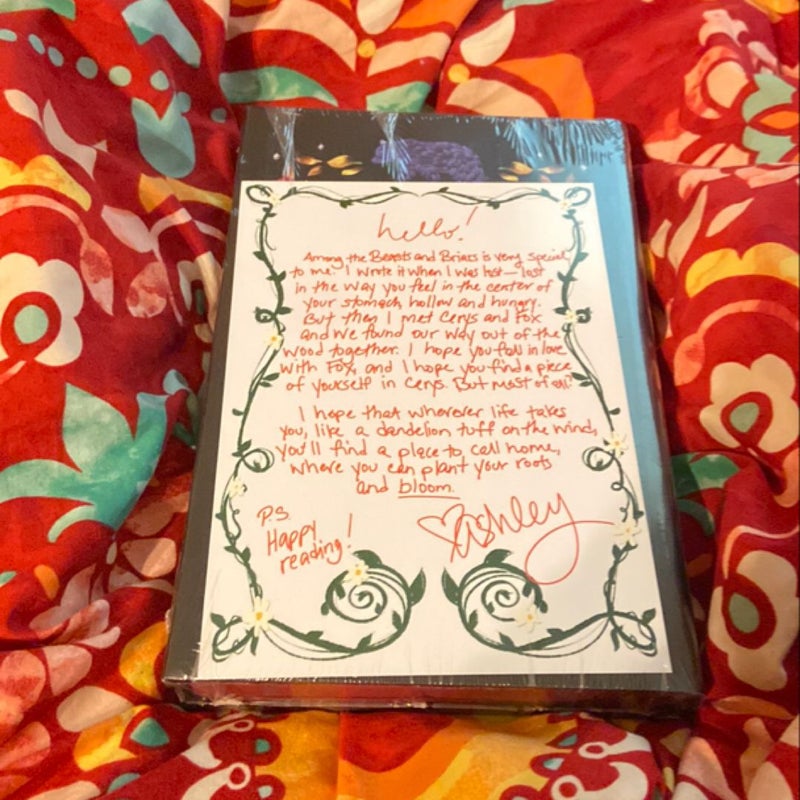 hello!
Among the Beasts and Briars is very special
to me. I wrote it when I was lost—lost
in the way you feel in the center of
your stomach, hollow and hungry.
But then I met Cerys and Fox
and we found our way out of the
wood together. I hope you fall in love
with Fox, and I hope you find a piece
of yourself in Cerys. But most of all?
I hope that wherever life takes
you, like a dandelion tuff on the wind,
you'll find a place to call home,
where you can plant your roots
and bloom.
P.S.
Happy
reading!
Ashley